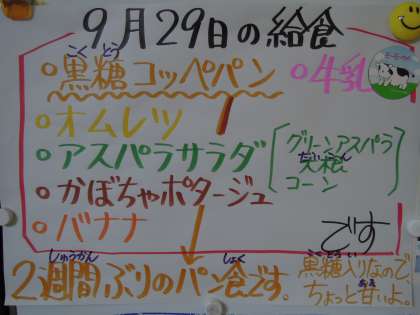 9月29日の給食
こくとう
○黒糖コッペパン
○牛乳
○オムレツ
○アスパラサラダ
グリーンアスパラ
だいこん
大根
コーン
○かぼちゃポタージュ
○バナナ
です
しゅうかん
しょく
2週間ぶりのパン食です。
こくとうい
黒糖入りなので、
あま
ちょっと甘いよ。